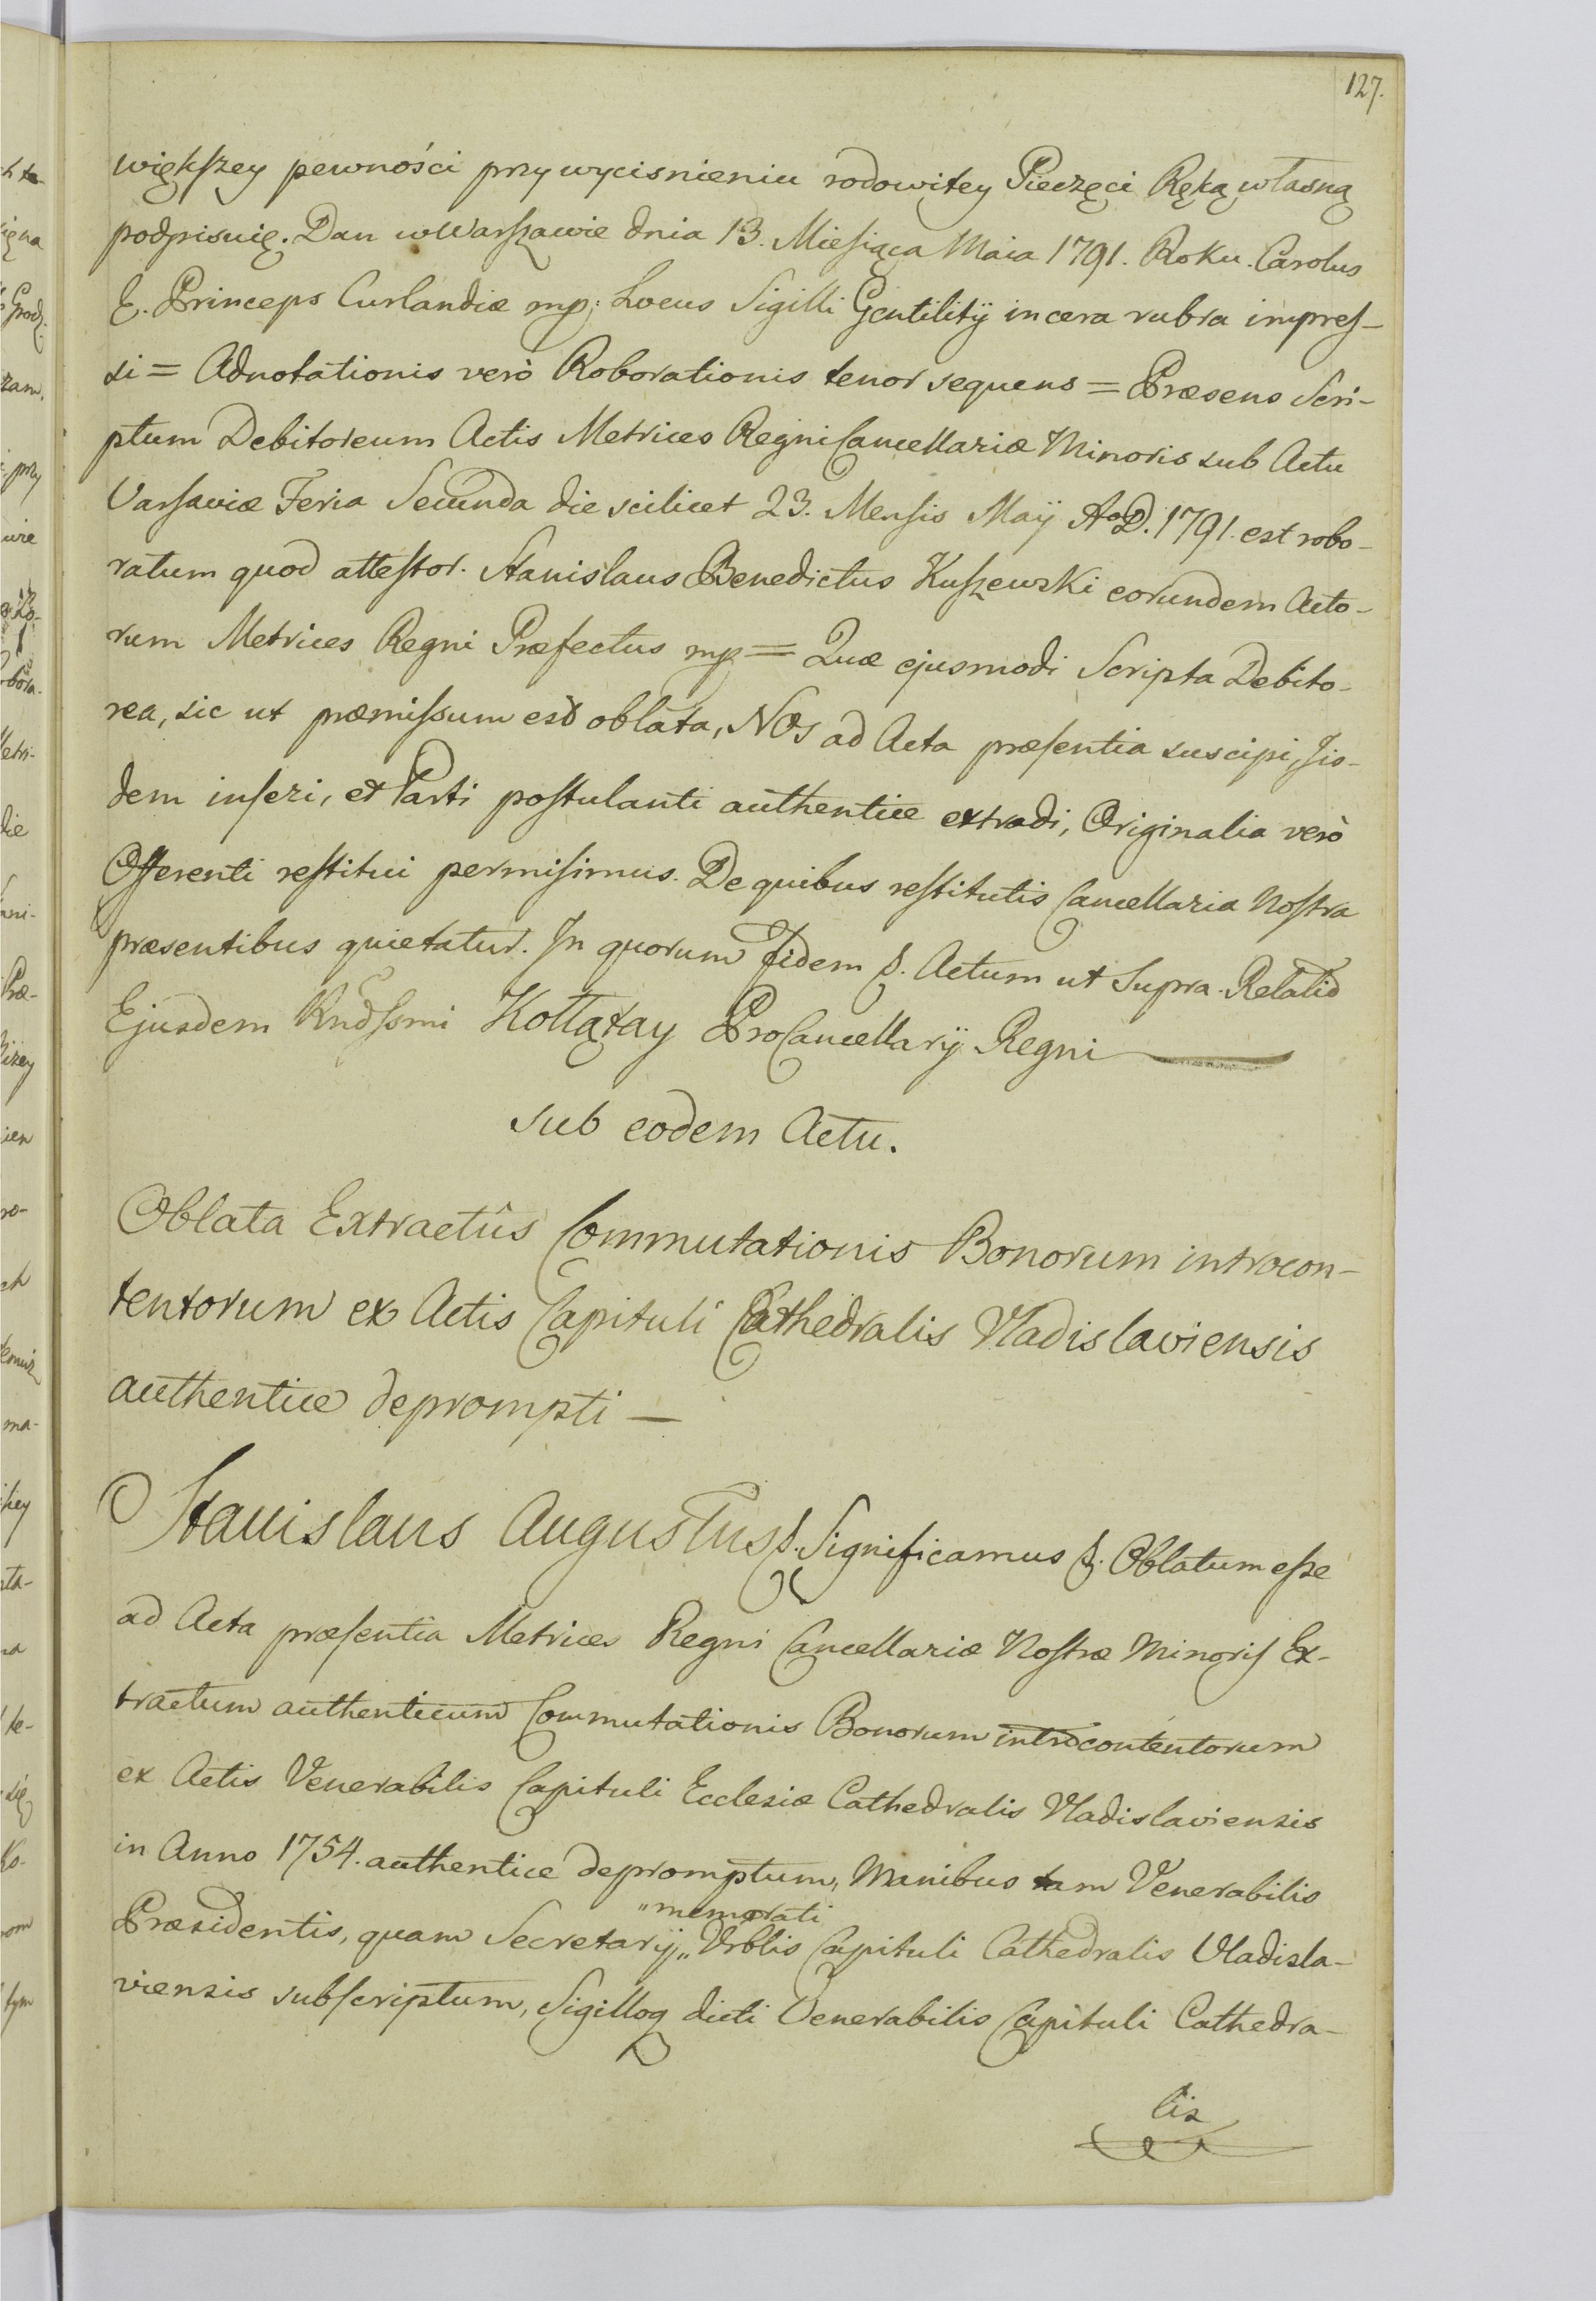 127.
większey pewności przy wycisnieniu rodowitey Pieczęci Ręką własną
podpisuię. Dan w Warszawie dnia 13. Miesiąca Maia 1791. Roku. Carolus
E. Princeps Curlandiæ mp; Locus Sigilli Gentilitÿ in cera rubra impres-
si = Adnotationis verò Roborationis tenor sequens = Præsens Scri-
ptum Debitoreum Actis Metrices Regni Cancellariæ Minoris sub Actu
Varsaviæ Feria Secunda die scilicet 23. Mensis Maÿ AoD. 1791. est robo-
ratum quod attestor. Stanislaus Benedictus Kuszewski eorundem Acto-
rum Metrices Regni Præfectus mp = Quæ ejusmodi Scripta Debito-
rea, sic ut præmissum est oblata, NOs ad Acta præsentia suscipi, Iis-
dem inseri, et Parti postulanti authentice extradi, Originalia verò
Offerenti restitui permisimus. De quibus restitutis Cancellaria Nostra
præsentibus quietatur. In quorum fidem &. Actum ut Supra. Relatio
Ejusdem Rndssmi Kołłątay ProCancellarÿ Regni
sub eodem Actu.
Oblata Extractûs Commutationis Bonorum introcon-
tentorum ex Actis Capituli Cathedralis Vladislaviensis
authentice deprompti —
Stanislaus Augustus &. Significamus &. Oblatum esse
ad Acta præsentia Metrices Regni Cancellariæ Nostræ Minoris Ex-
tractum authenticum Commutationis Bonorum introcontentorum
ex Actis Venerabilis Capituli Ecclesiæ Cathedralis Vladislaviensis
in Anno 1754. authentice depromptum, Manibus tam Venerabilis
"memorati
Præsidentis, quam Secretarÿ „ Vrblis Capituli Cathedralis Vladisla-
viensis subscriptum, Sigilloq dicti Venerabilis Capituli Cathedra-
lis